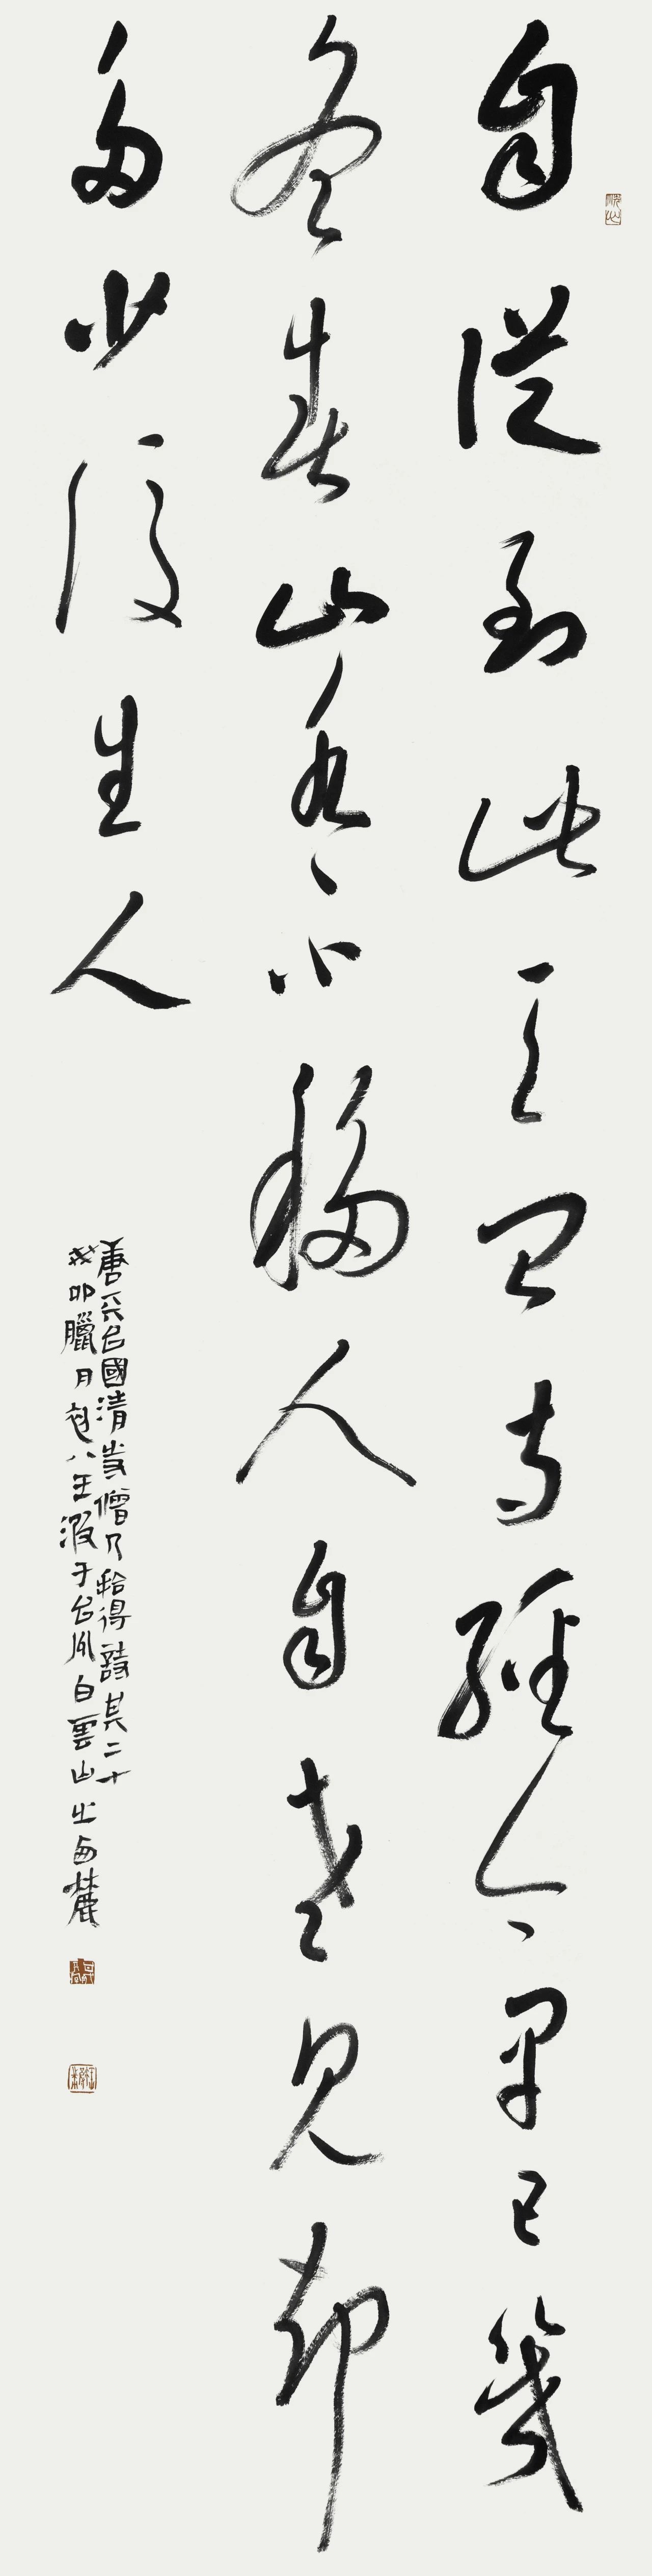 自從到此天台寺經今早已幾
冬春山水不移人自老見却
多少後生人
唐天台國清寺僧人拾得詩其二十
癸卯臘月初八王瀫于台州白雲山之西麓